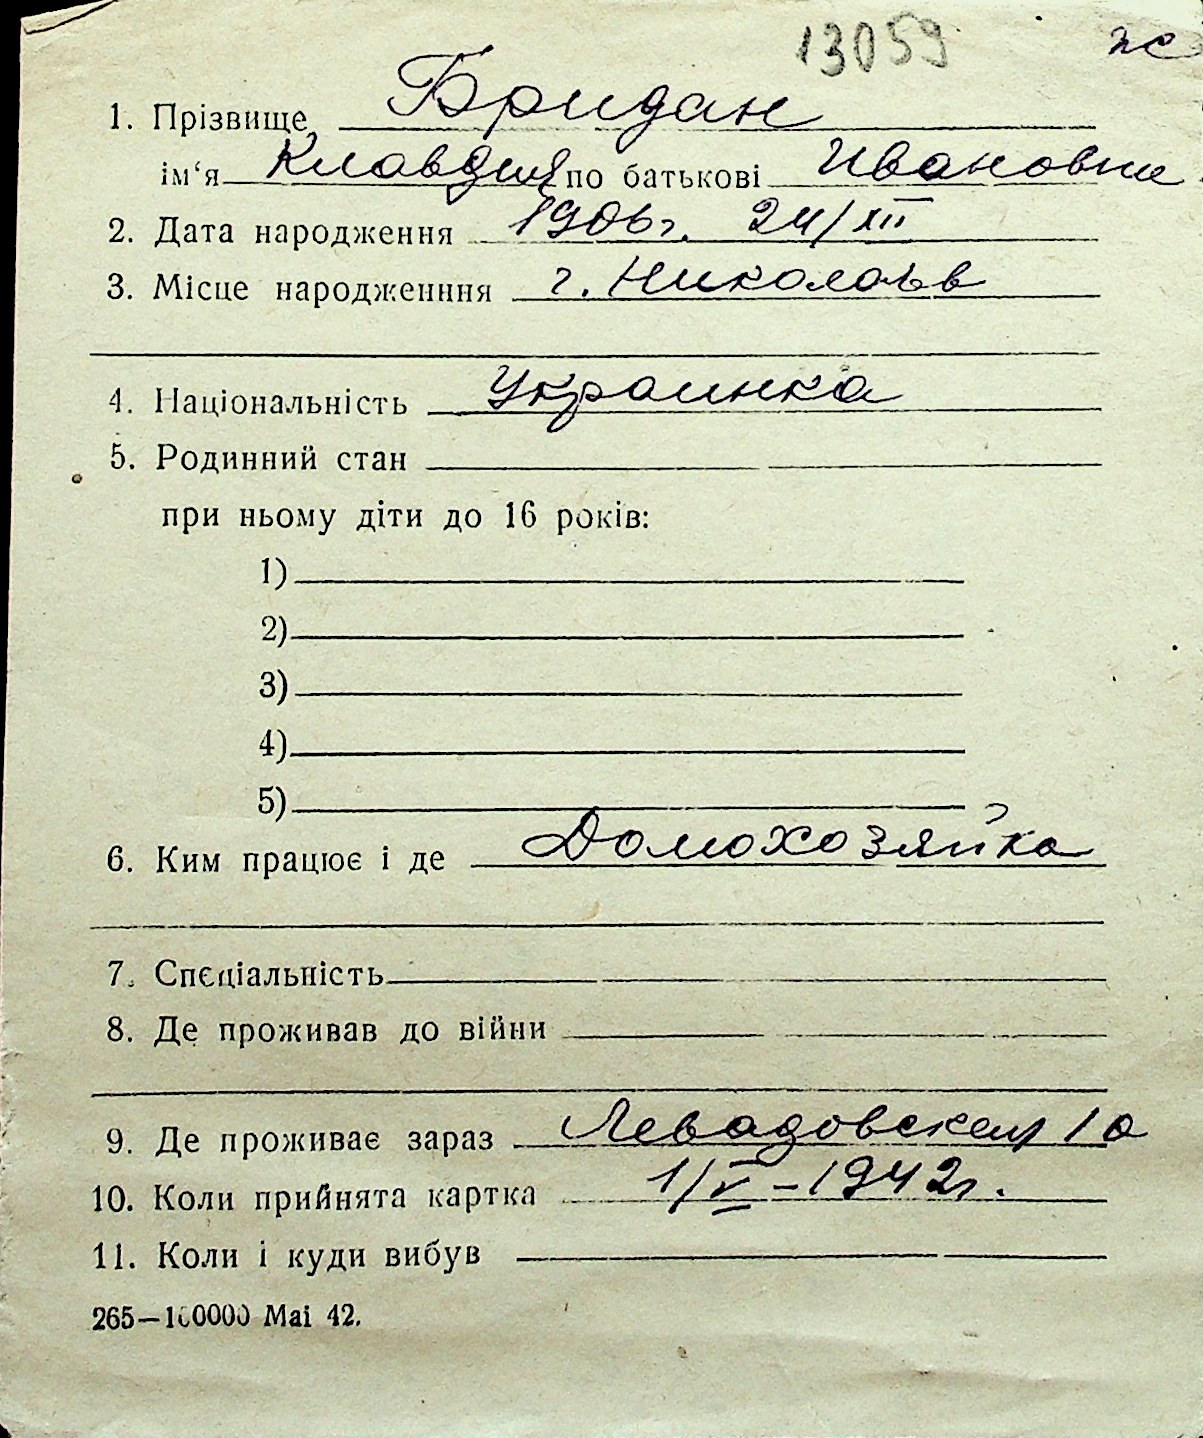 13059 пс
1. Прізвище Бридан
ім‘я Клавдия по батькові Ивановна
2. Дата народження 1906 г. 24/XII
3. Місце народженння г. Николаев
4. Національність Украинка
5. Родинний стан
при ньому діти до 16 років:
1)
2)
3)
4)
5)
6. Ким працює і де Домохозяйка
7. Спєціальність
8. Де проживав до війни
9. Де проживає зараз Левадовская 1 а
10. Коли прийнята картка 1/V – 1942 г.
11. Коли і куди вибув
265—100000 Mai 42.